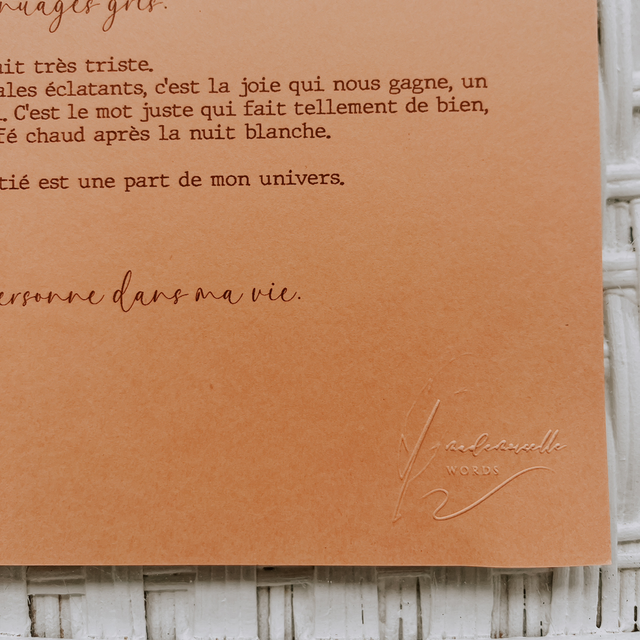 nuages gris.
uit très triste.
ales éclatants, c'est la joie qui nous gagne, un
. C'est le mot juste qui fait tellement de bien,
fé chaud après la nuit blanche.
tié est une part de mon univers.
ersonne dans ma vie.
mademoiselle
WORDS